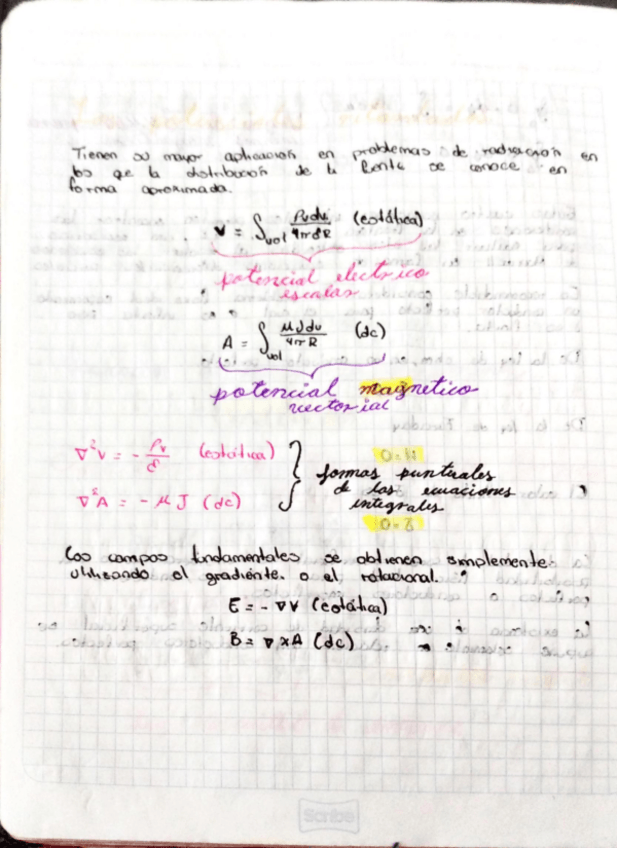 Tienen su mayor aplicación en problemas de radiación en
los que la distribución de la fuente se conoce en
forma aproximada.
V = ∫vol ρv dv / 4πεR (estática)
potencial electrico
escalar
A = ∫vol μJdv / 4πR (dc)
potencial magnetico
vectorial
∇²V = - ρv/ε (estática)
∇²A = - μ J (dc)
formas puntuales
de las ecuaciones
integrales
Los campos fundamentales se obtienen simplemente
utilizando el gradiente o el rotacional.
E = - ∇V (estática)
B = ∇ x A (dc)
Scribe